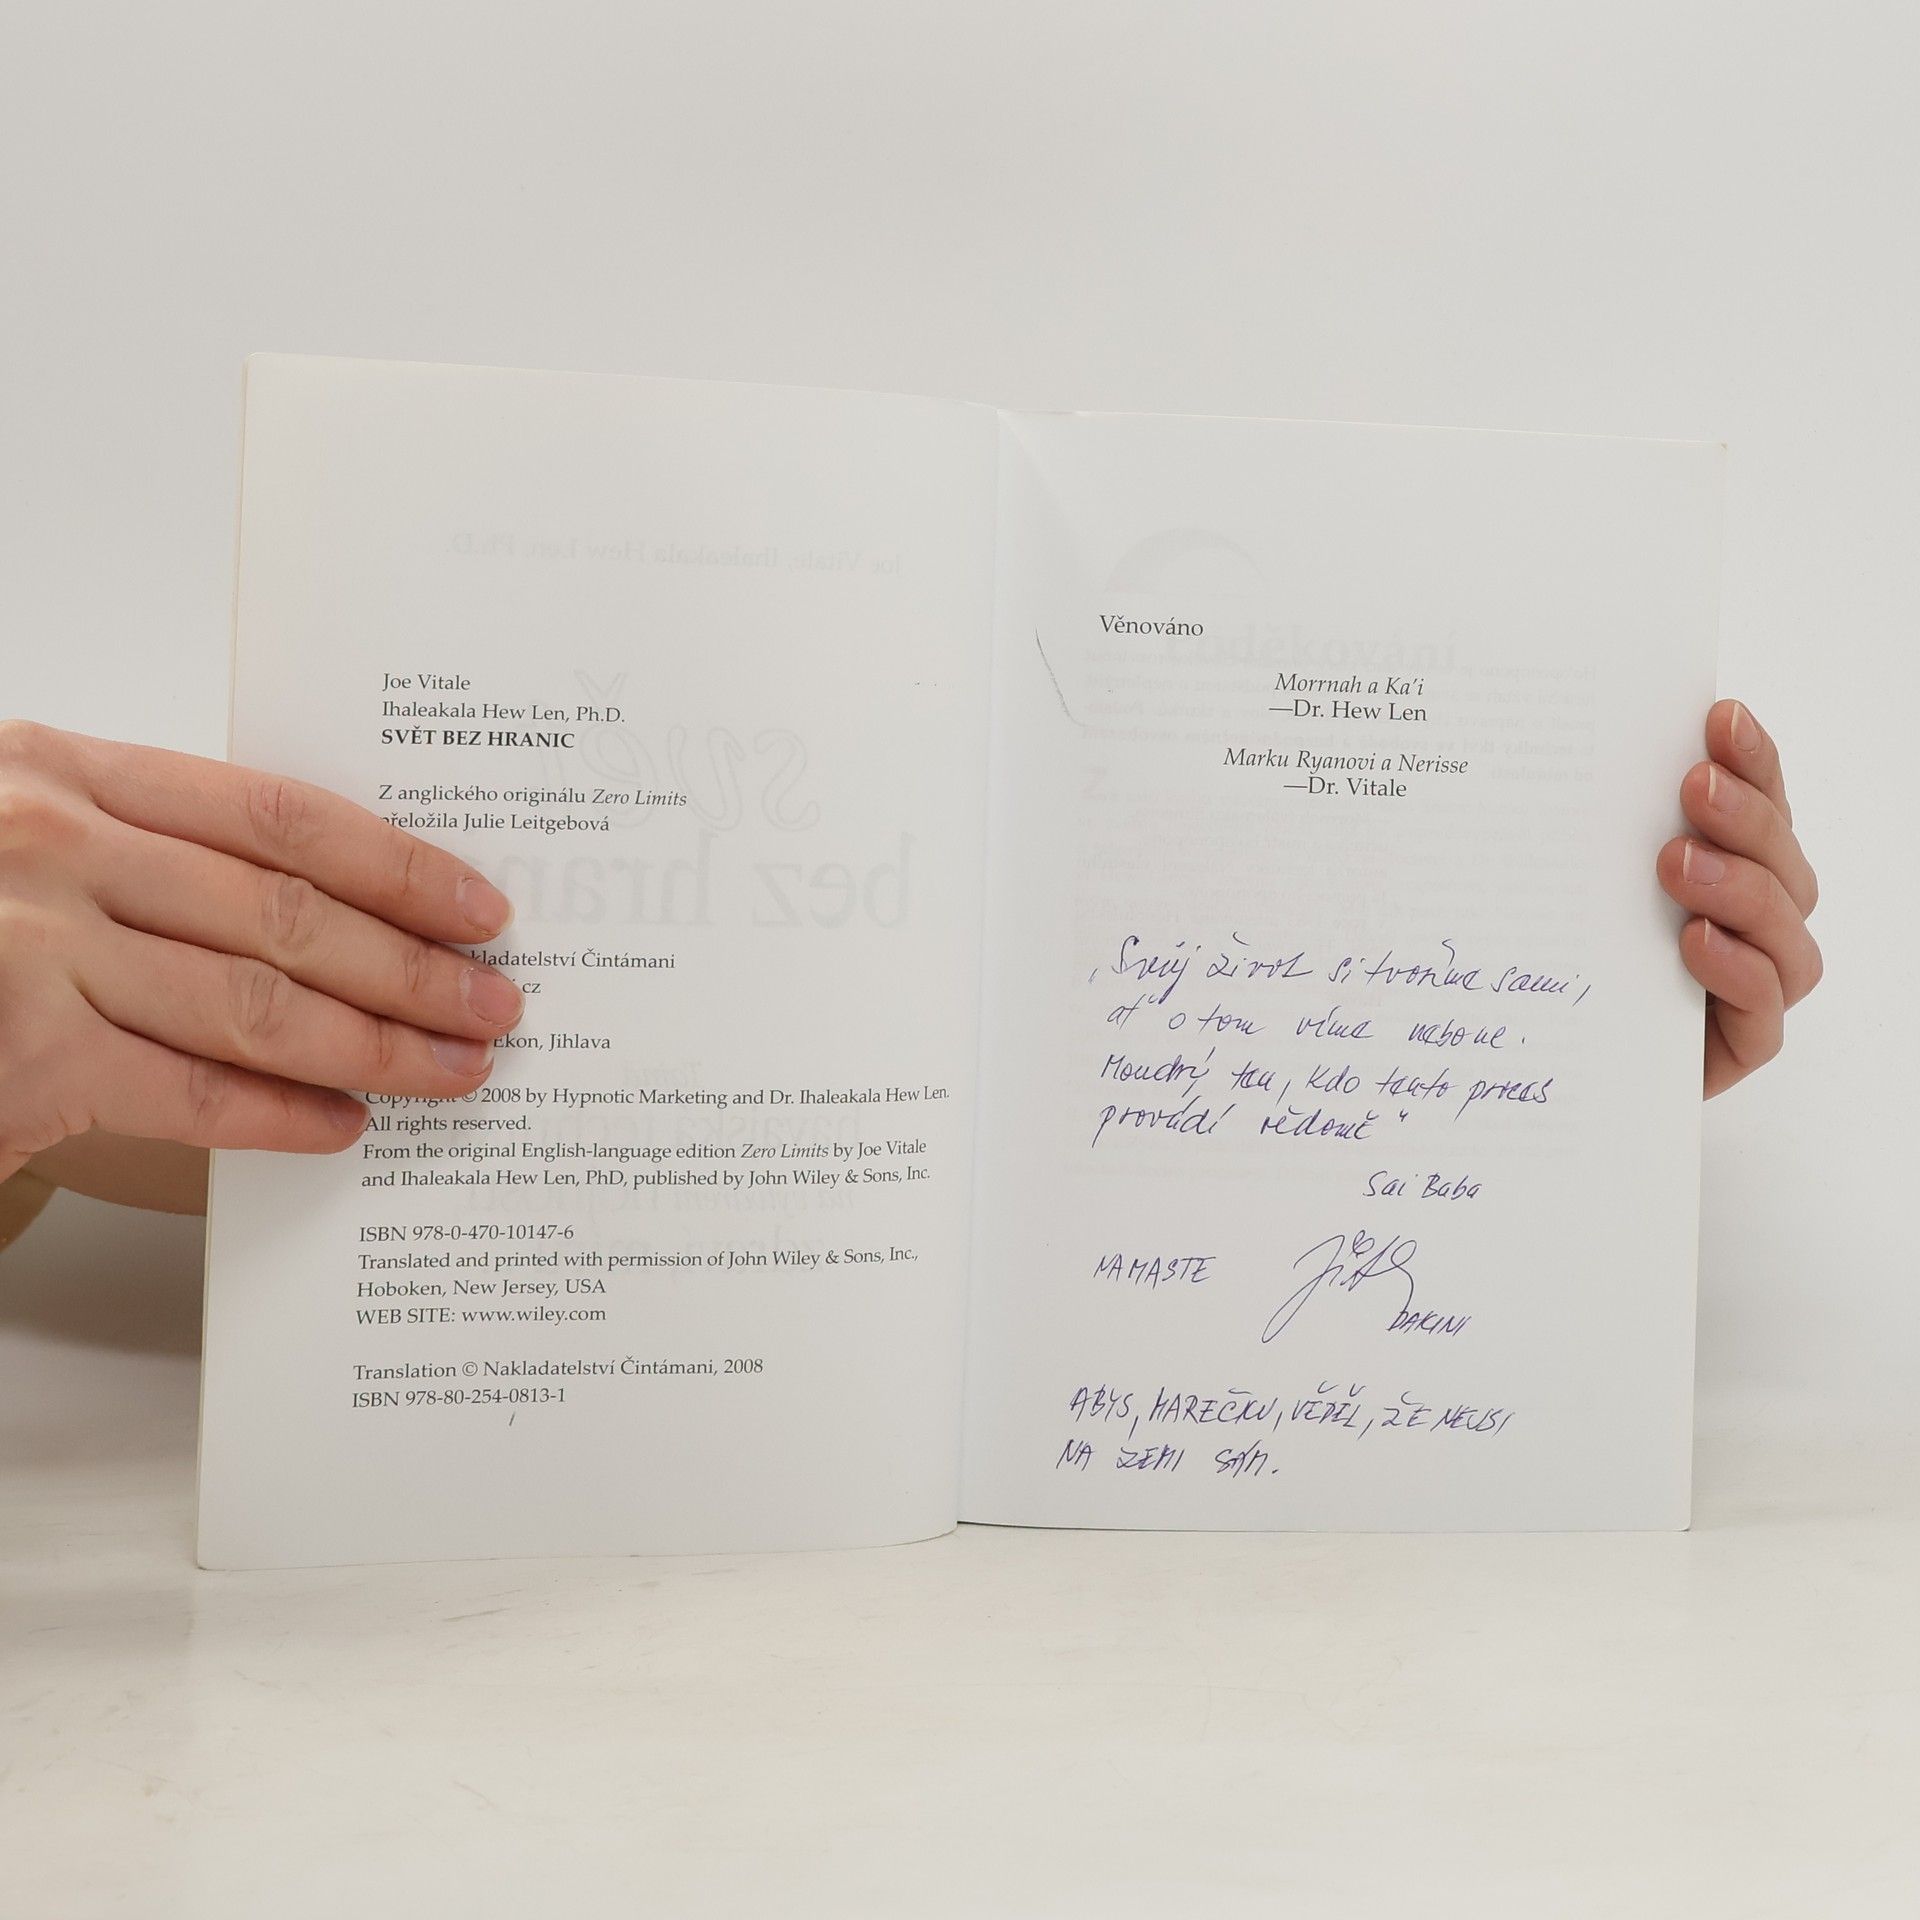 Joe Vitale
Ihaleakala Hew Len, Ph.D.
SVĚT BEZ HRANIC
Z anglického originálu Zero Limits
přeložila Julie Leitgebová
kladatelství Čintámani
cz
Ekon, Jihlava
Copyright © 2008 by Hypnotic Marketing and Dr. Ihaleakala Hew Len.
All rights reserved.
From the original English-language edition Zero Limits by Joe Vitale
and Ihaleakala Hew Len, PhD, published by John Wiley & Sons, Inc.
ISBN 978-0-470-10147-6
Translated and printed with permission of John Wiley & Sons, Inc.,
Hoboken, New Jersey, USA
WEB SITE: www.wiley.com
Translation © Nakladatelství Čintámani, 2008
ISBN 978-80-254-0813-1
Věnováno
Morrnah a Ka'i
—Dr. Hew Len
Marku Ryanovi a Nerisse
—Dr. Vitale
„Svůj život si tvoříme sami,
ať o tom víme nebo ne.
Moudrý ten, kdo tento proces
provádí vědomě“
Sai Baba
NAMASTE
DAKINI
ABYS, MAREČKU, VĚDĚL, ŽE NEJSI
NA ZEMI SÁM.